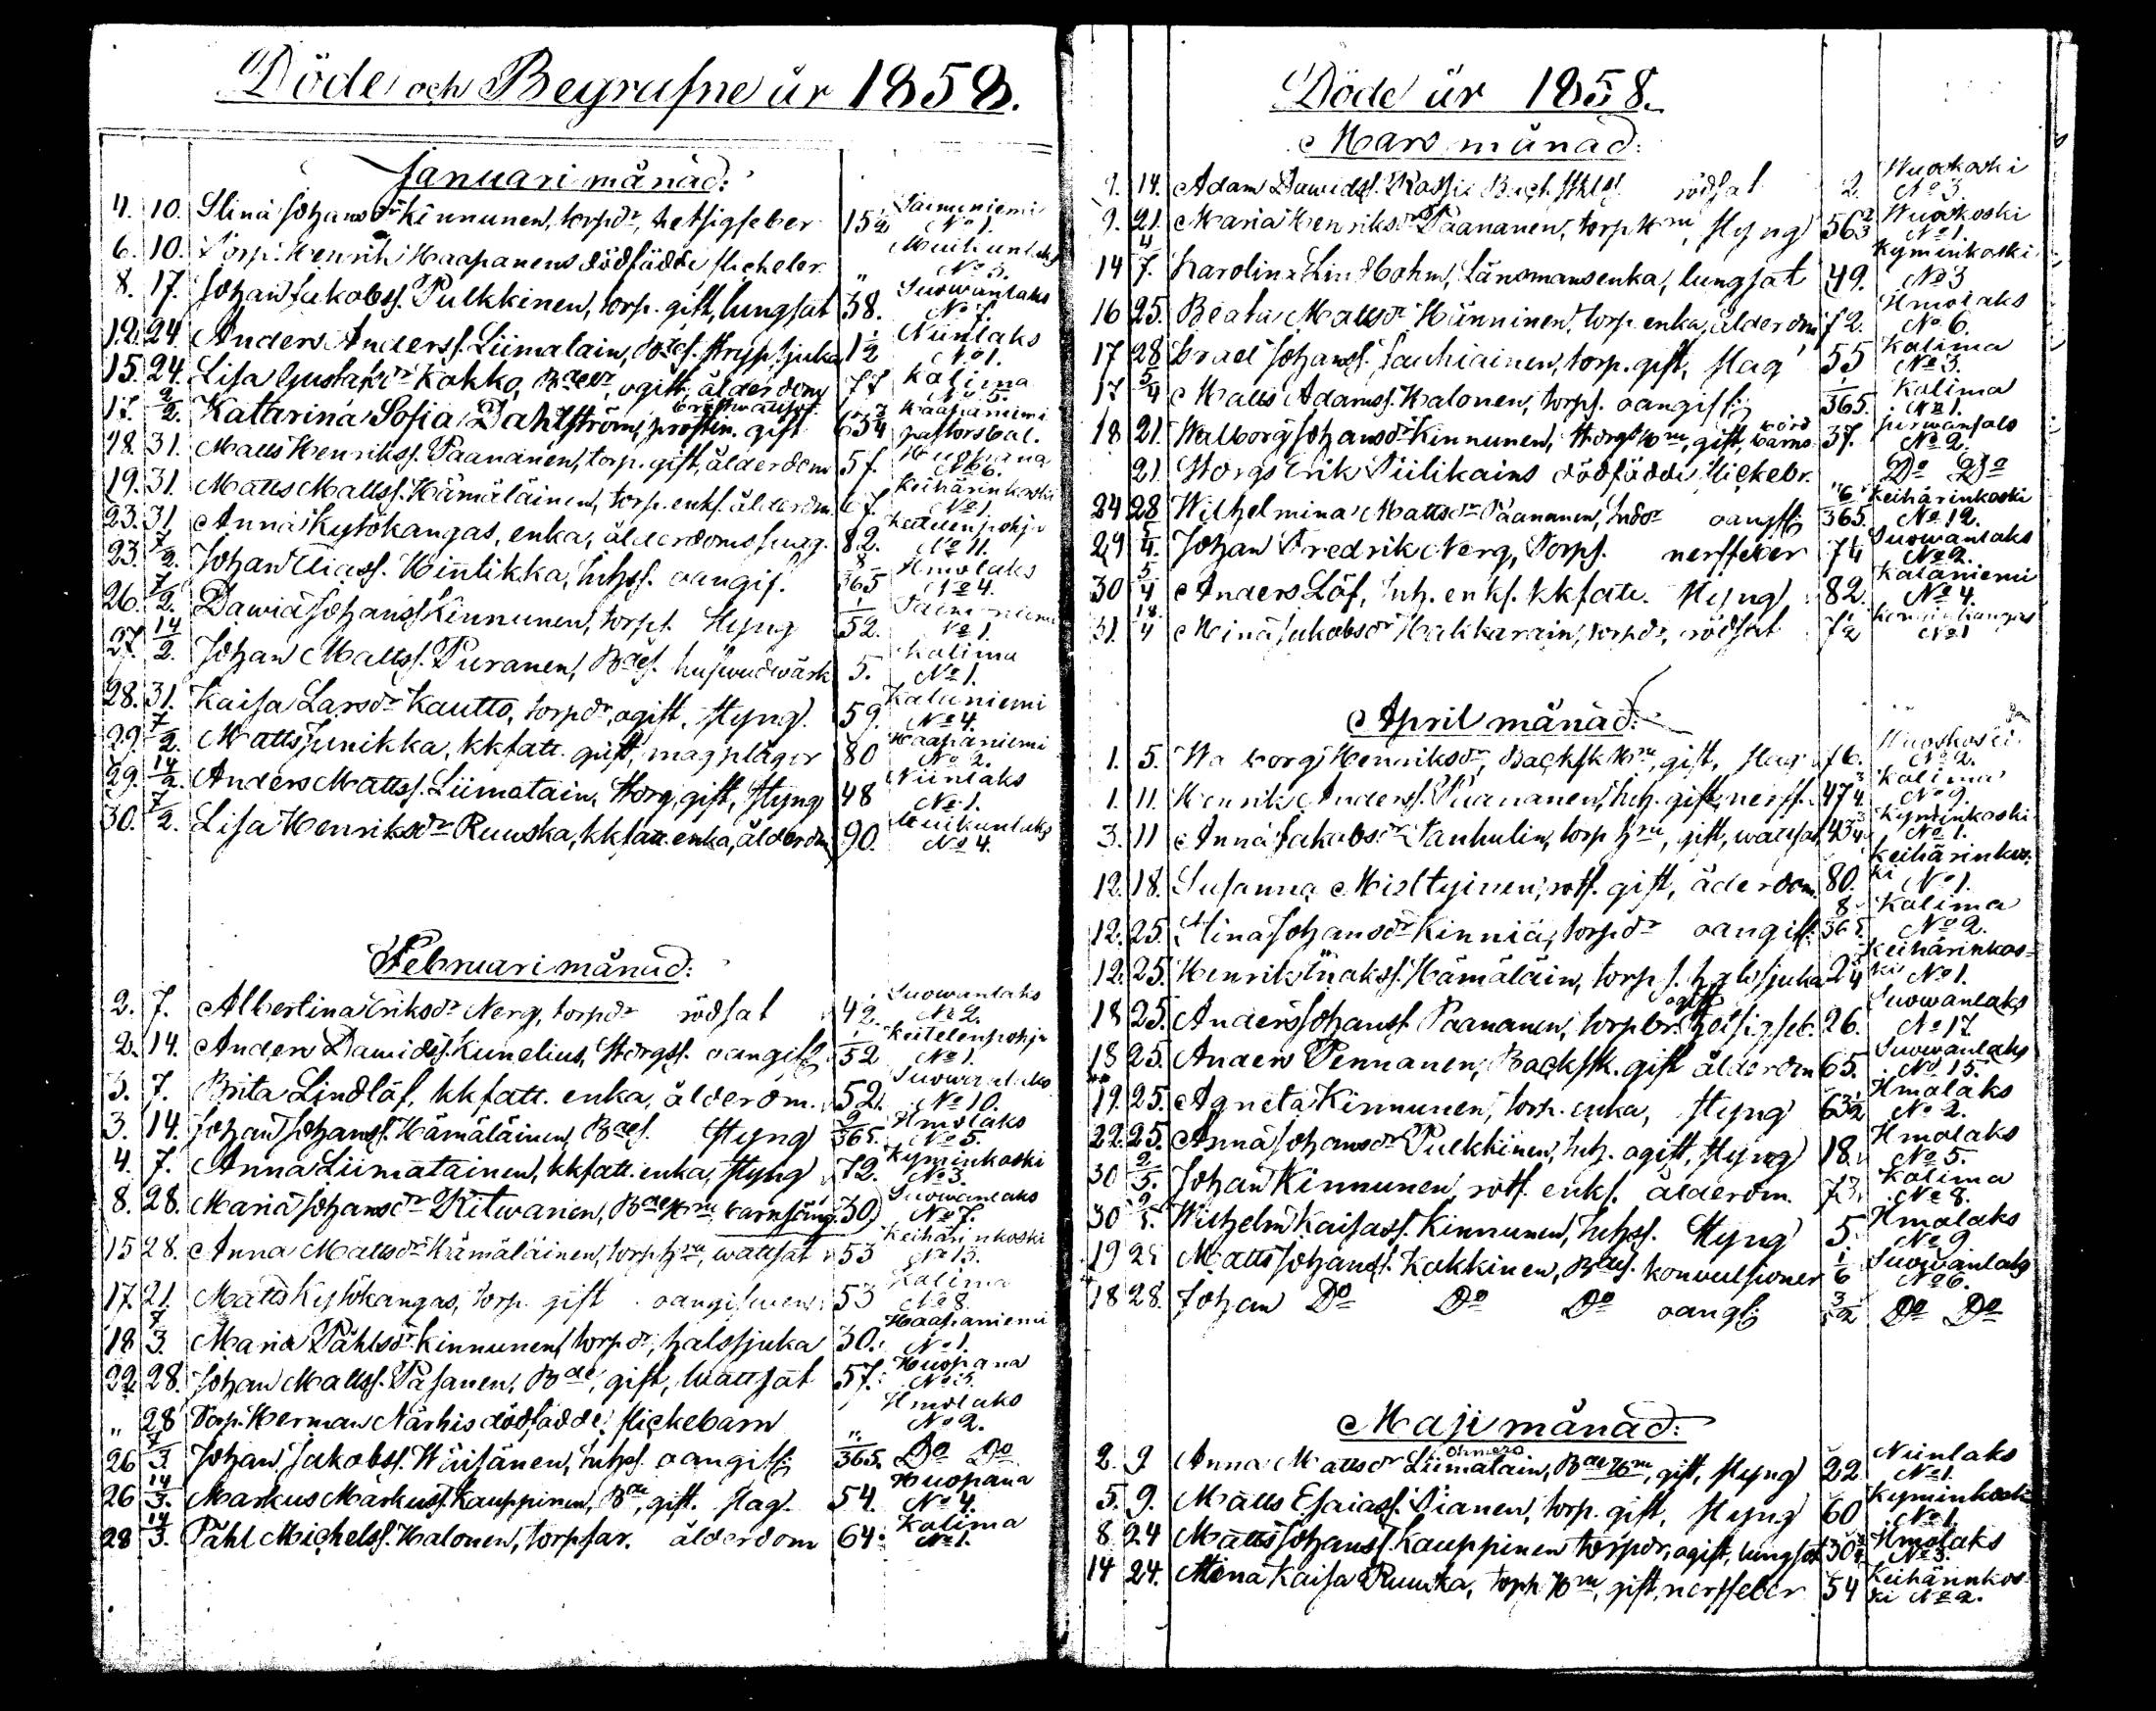 Döde och Begrafne år 1858.
Januari månad:
4. 10. Stina Johansdr Kinnunen, torpdr, hetsigfeber 1 1/2 Saimuniemi No 1.
6. 10. Torp. Henrik Haapanens dödfödde flickebr. " Muikunlaks No 3.
8. 17. Johan Jakobss. Pulkkinen, torp. gift, lungsot 38. Suowanlaks No 7.
12. 24. Anders Anderss. Liimatain, strypsjuka 1 1/2 Niinlaks No 1.
15. 24. Lisa Gustafsdr Kokko, ogift, ålderdom 77 Kolima No 5.
17. 2/2. Katarina Sofia Dahlström, prostin. gift bröstwattus. 65 3/4 Haapaniemi pastorsbol.
18. 31. Matts Henrikss. Paananen, torp. gift, ålderdom 57. Huopana No 6.
19. 31. Matts Mattss. Hämäläinen, torp. enkl. ålderdm. 67. Keihärinkoski No 1.
23. 31. Anna Kytökangas, enka, ålderdoms 82. Keitelenpohja No 11.
23. 7/2. Johan Eliass. Hintikka, Inhss. oangif. 8/365 Ilmolaks No 4.
26. 7/2. Dawid Johanss. Kinnunen, torps. Styng 1/52. No 1.
27. 14/2. Johan Mattss. Puranen, hufwudwärk 5. Kolima No 1.
28. 31. Kaisa Larsdr Kautto, torpdr, ogift, styng. 59. Kalaniemi No 4.
29. 7/2. Matts Junikka, kkfatt. gift, magplågor 80 Haapaniemi No 2.
29. 14/2. Anders Mattss. Liimatain, Storg. gift, styng 48 Niinlaks No 1.
30. 7/2. Lisa Henriksdr Ruuska, kkfatt. enka, ålderdm 90. Muikunlaks No 4.
Februari månad:
2. 7. Albertina Eriksdr Nerg, torpdr rödsot 42. Suowanlaks No 2.
2. 14. Anders Dawidss. Kunelius, Storgss. oangift 52 Keitelenpohja No 1.
3. 7. Brita Lindlöf, kkfatt. enka, ålderdm. 52. Suowanlaks No 10.
3. 14. Johan Johanss. Hämäläinen, Styng 9/365. Ilmolaks No 5.
4. 7. Anna Liimatainen, kkfatt. enka, styng 72. Kyminkoski No 3.
8. 28. Maria Johansdr Ritwanen, barnsäng. 30 Suowanlaks No 7.
15 28. Anna Mattsdr Hämäläinen, torp hru, wattsot 53 Keihärinkoski No 13.
17. 21. Matts Kytökangas, torp. gift oangifwen 53 Kolima No 8.
18 7/3. Maria Påhlsdr Kinnunen, torpdr, halssjuka 30. Haapaniemi No 1.
22 28. Johan Mattss. Pasanen, gift, wattsot 57. Huopana No 5.
" 28 Torp. Herman Närhis dödfödde flickebarn " Ilmolaks No 2.
26 7/3. Johan Jakobss. Wäisänen, Inhss. oangif. /365. Do Do
26 14/3. Markus Markuss. Kauppinen, gift. slag. 54. Huopana No 4.
28 14/3. Påhl Michelss. Halonen, torpfar. ålderdom 64. Kolima No 1.
Döde år 1858.
Mars månad:
9. 14. Adam Dawidss. rödsot 2. Wuoskoski No 3.
9. 21. Maria Henriksdr Paananen, torp hru, styng 56 2/3 Wuoskoski No 1.
14 4/7. Karolina Lindbohm, Länsmansenka, lungsot 49. Kyminkoski No 3
16 25. Beata Mattsdr Hänninen, torp. enka, ålderdm 72. Ilmolaks No 6.
17 28 Israel Johanss. Jauhiainen, torp. gift, slag 55 Kolima No 3.
17 5/4 Matts Adamss. Halonen, torps. oangif 1/365. Kolima No 1.
18 21. Walborg Johansdr Kinnunen, Storgs hru, gift, barns börd 37. No 2.
21 Storgs Erik Tiilikains dödfödde flickebr. " Do Do
24 28 Wilhelmina Mattsdr Paananen, Inhdr oangif 6/365. Keihärinkoski No 12.
29 5/4. Johan Fredrik Nerg, Torps. nerffeber 7 1/4 Suowanlaks No 2.
30 5/4 Anders Löf, Inh. enkl. kkfatt. Styng 82. Kalaniemi No 4.
31. 18/4 Mina Jakobsdr Hakkarain, torpdr, rödsot No 1
April månad:
1. 5. Walborg Henriksdr, Backsk hru, gift, slag 76. Wuoskoski No 2.
1. 11. Henrik Anderss. Paananen, Inh. gift, nerff. 47 3/4. Kolima No 9.
3. 11 Anna Jakobsdr Tanhulin, torp hru, gift, wattsot 43 3/4 Kyminkoski No 1.
12. 18. Susanna gift, åderdom. 80. Keihärinkoski No 1.
12. 25. Stina Johansdr Kinnia, torpdr oangift. 8/365. Kolima No 2.
12. 25. Henrik Hämäläin, torps. halssjuka 2 Keihärinkoski No 1.
18 25. Anders Johanss. Paananen, torpbr. ogift hetsigfeb. 26. Suowanlaks No 17
18 25. Anders Pennanen, Backsk. gift ålderdm 65. Suowanlaks No 15.
19. 25. Agneta Kinnunen, torp. enka, styng 63 1/2 Ilmolaks No 2.
22. 25. Anna Johansdr Pulkkinen, Inh. ogift, styng 18. Ilmolaks No 5.
30 2/5. Johan Kinnunen, enkl. ålderdm. 73. Kolima No 8.
30 2/5. Wilhelm Kaisass. Kinnunen, Inhss. Styng 5. Ilmolaks No 9
19 25 Matts Johanss. Kukkinen, konvulsioner 1/6 Suowanlaks No 6.
18 28. Johan Do Do Do oangf. Do Do
Maji månad:
2. 9. Anna Mattsdr Liimatain, Ohmero gift, styng 22. Niinlaks No 1.
5. 9. Matts Esaiass. Pianen, torp. gift, styng 60 Kyminkoski No 1.
8 24 Matts Johanss. Kauppinen torpdr, ogift, lungsot 30 Ilmolaks No 3.
14 24. Mina Kaisa Ruuska, torp hru, gift, nerffeber 54 Keihärinkoski No 2.